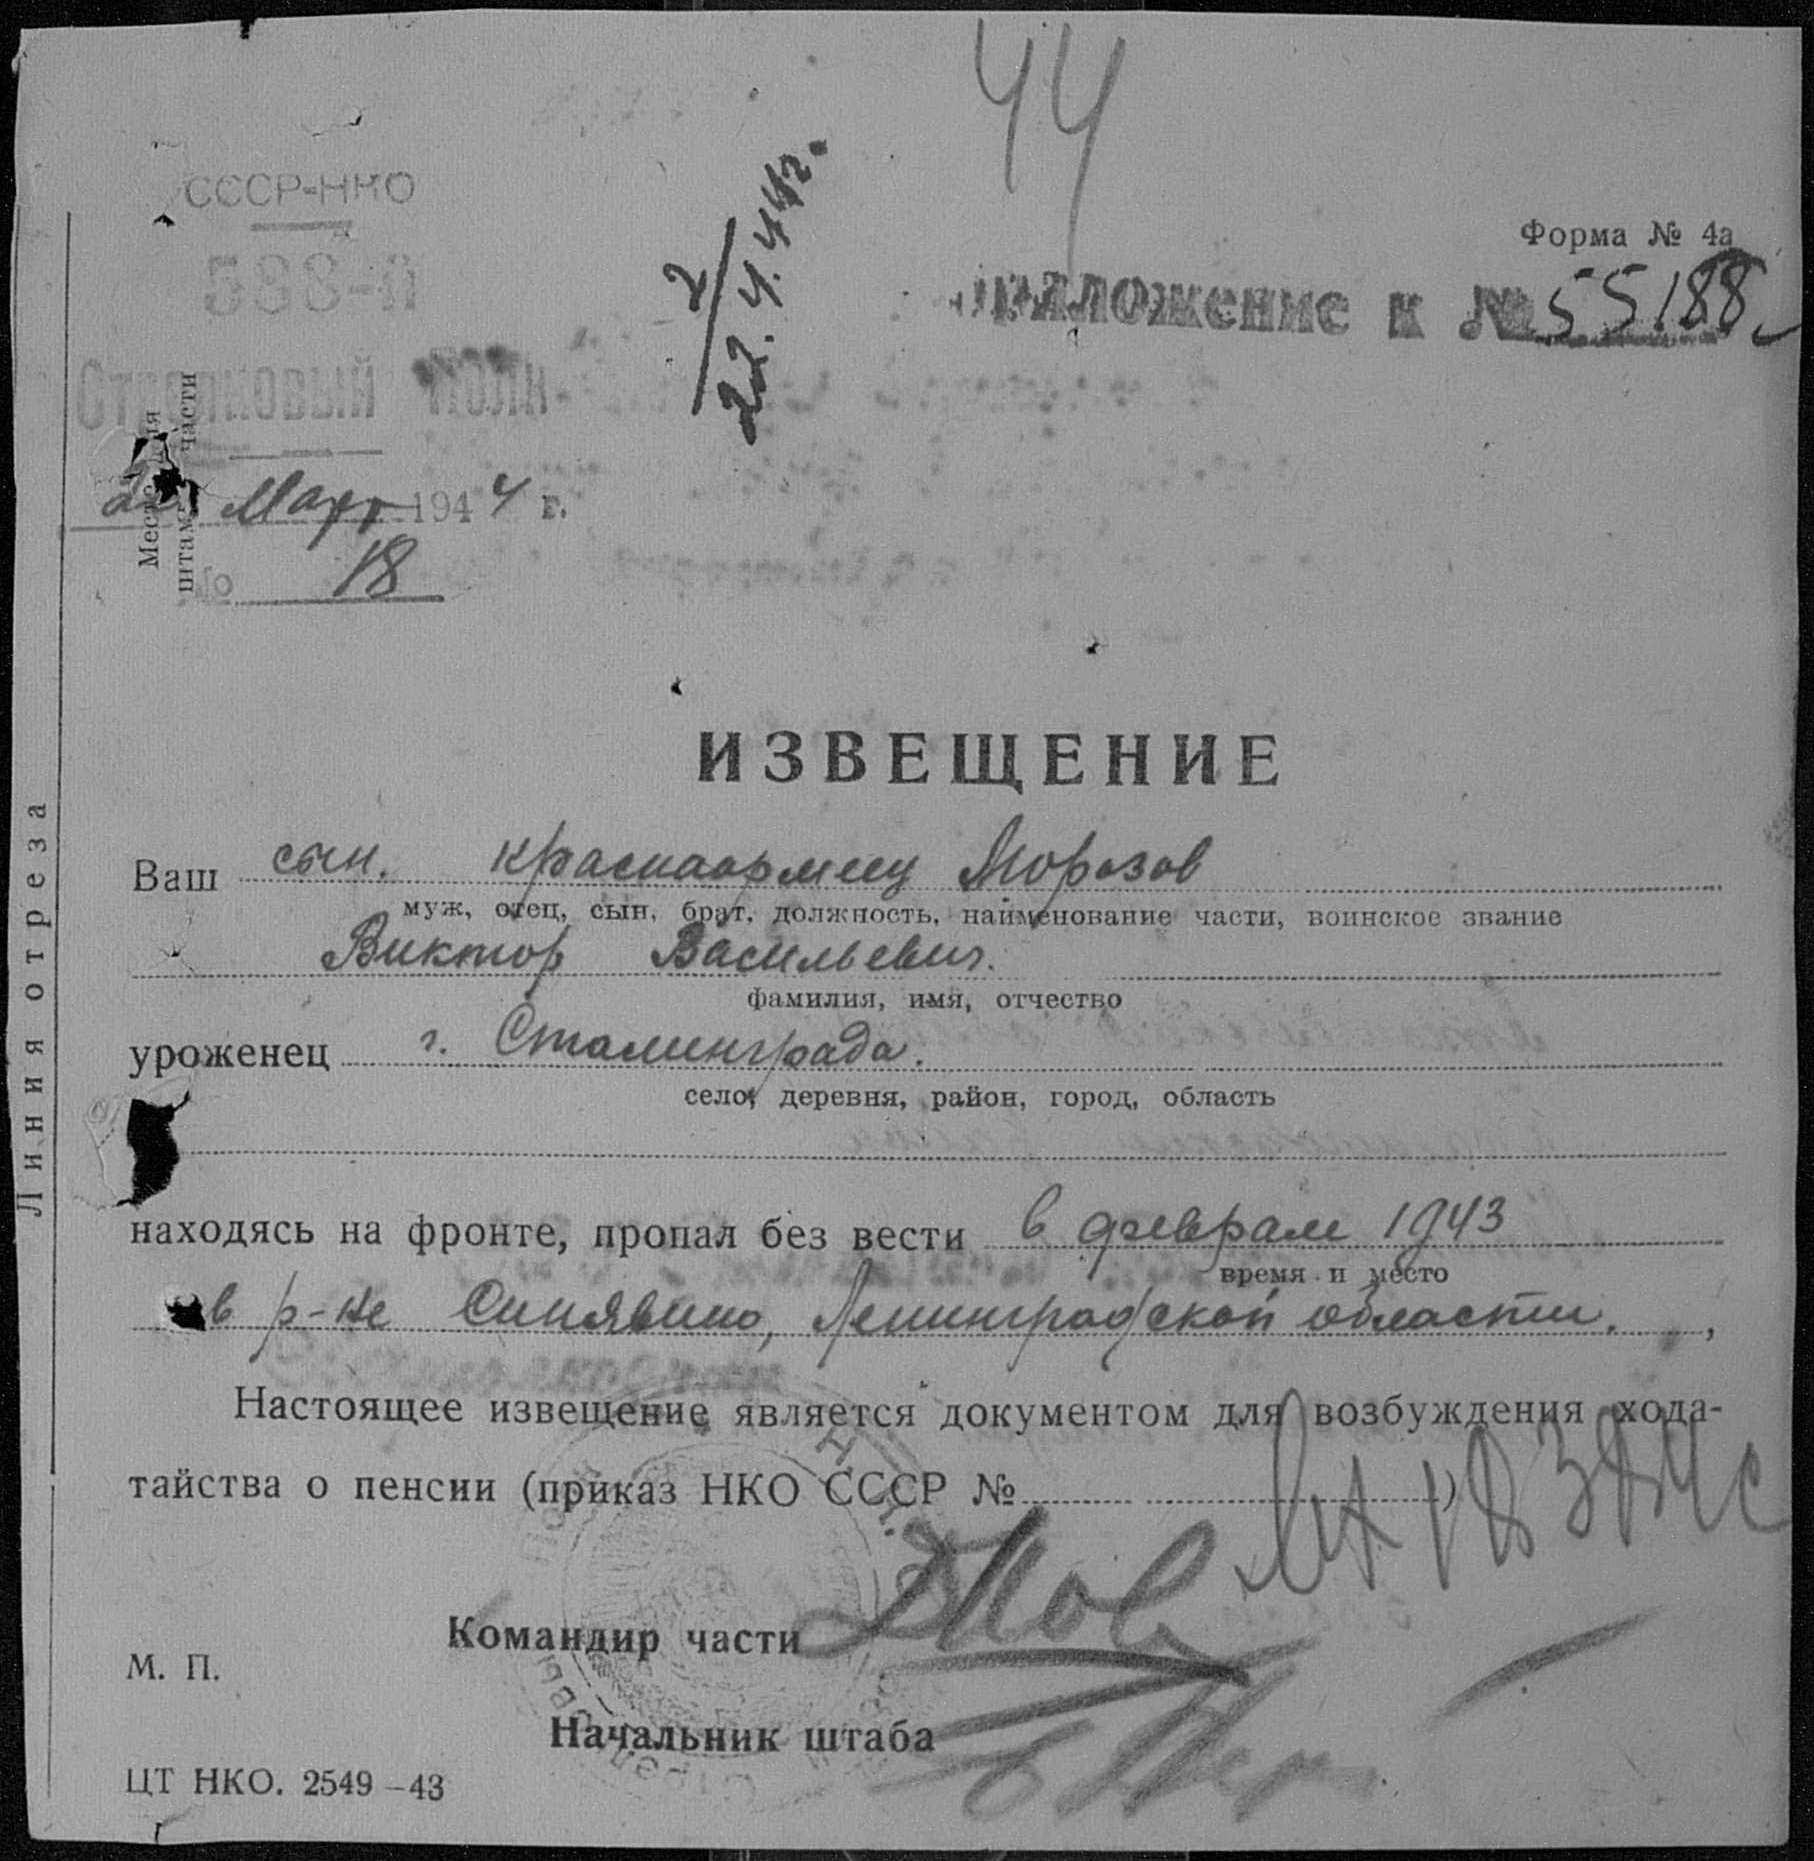 44
СССР-НКО
Форма № 4а
588-й
Приложение к № 55188
2/22.4.44г.
Стрелковый полк
Место для
штампа части
Март 1944 г.
№ 18
ИЗВЕЩЕНИЕ
Линия отреза
Ваш сын. красноармеец Морозов
муж, отец, сын, брат, должность, наименование части, воинское звание
Виктор Васильевич.
фамилия, имя, отчество
уроженец г. Сталинграда.
село, деревня, район, город, область
находясь на фронте, пропал без вести в феврале 1943
время и место
в р-не Синявино, Ленинградской области. ,
Настоящее извещение является документом для возбуждения хода-
тайства о пенсии (приказ НКО СССР № )
Командир части
М. П.
Начальник штаба
ЦТ НКО. 2549-43